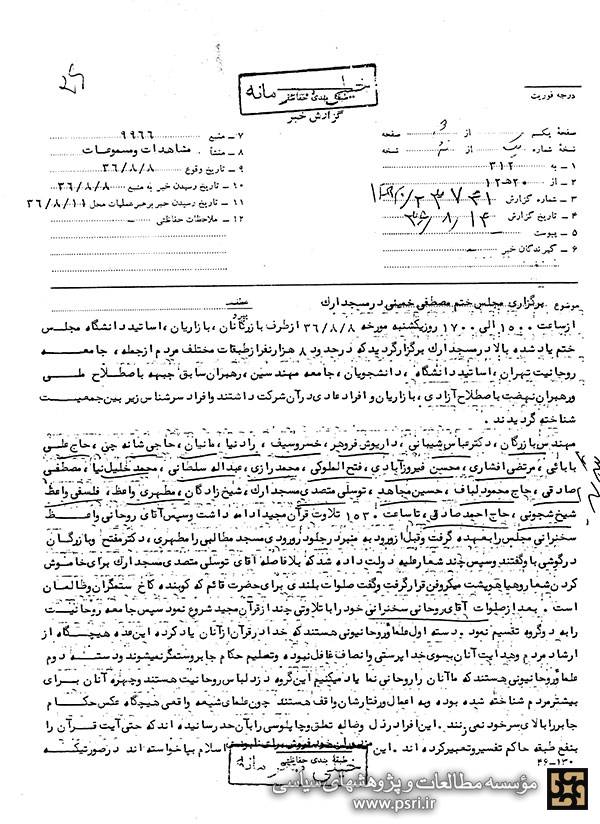 خیلی محرمانه
طبقه بندی حفاظتی
گزارش خبر
درجه فوریت
صفحه یکم از ۳ صفحه
نسخه شماره یک از نسخه
۱ - به ۳۱۲
۲ - از ۲۰ هـ ۱۲
۳ - شماره گزارش ۲۳۷۴۱/
۴ - تاریخ گزارش ۳۶/۸/۱۴
۵ - پیوست
۶ - گیرندگان خبر
۷ - منبع ۹۹۶۶
۸ - منشأ مشاهدات ومسموعات
۹ - تاریخ وقوع ۳۶/۸/۸
۱۰ - تاریخ رسیدن خبر به منبع ۳۶/۸/۸
۱۱ - تاریخ رسیدن خبر برهبر عملیات محل ۳۶/۸/۱۱
۱۲ - ملاحظات حفاظتی
موضوع برگزاری مجلس ختم مصطفی خمینی در مسجد ارک
از ساعت ۱۵۰۰ الی ۱۷۰۰ روز یکشنبه مورخه ۳۶/۸/۸ از طرف بازرگانان ، بازاریان ، اساتید دانشگاه مجلس
ختم یاد شده بالا در مسجد ارک برگزار گردید که در حدود ۸ هزار نفر از طبقات مختلف مردم از جمله ، جامعه
روحانیت تهران ، اساتید دانشگاه ، دانشجویان ، جامعه مهندسین ، رهبران سابق جبهه باصطلاح ملی
و رهبران نهضت باصطلاح آزادی ، بازاریان و افراد عادی در آن شرکت داشتند و افراد سرشناس زیر بین جمعیت
شناخته گردیدند .
مهندس بازرگان ، دکتر عباس شیبانی ، داریوش فروهر ، خسرو سیف ، راد نیا ، مانیان ، حاجی شانه چی ، حاج علی
بابائی ، مرتضی افشاری ، محسن فیروزآبادی ، فتح الملوکی ، محمد رازی ، عبداله سلطانی ، محمد خلیل نیا ، مصطفی
صادقی ، حاج محمود لباف ، حسین مجاهد ، توسلی متصدی مسجد ارک ، شیخ زادگان ، مطهری واعظ ، فلسفی واعظ
شیخ شجونی ، حاج احمد صادق ، تا ساعت ۱۵۳۰ تلاوت قرآن مجید ادامه داشت و سپس آقای روحانی واعظ
سخنرانی مجلس را بعهده گرفت و قبل از ورود به منبر در جلو در ورودی مسجد مطالبی را مطهری ، دکتر مفتح و بازرگان
در گوشی با و گفتند و سپس چند شعار علیه دولت داده شد که بلافاصله آقای توسلی متصدی مسجد ارک برای خاموش
کردن شعار و هیاهو پشت میکروفن قرار گرفت و گفت صلوات بلندی برای حضرت قائم که کوبنده کاخ ستمگران و ظالمان
است . بعد از صلوات آقای روحانی سخنرانی خود را با تلاوتی چند از قرآن مجید شروع نمود سپس جامعه روحانیت
را به دو گروه تقسیم نمود . دسته اول علما و روحانیونی هستند که خدا در قرآن از آنان یاد کرده این عده هیچگاه از
ارشاد مردم و هدایت آنان بسوی خدا پرستی و انصاف غافل نبوده و تعلیم حکام جابر و ستمگر نمیشوند و دسته دوم
علما و روحانیونی هستند که ما آنان را روحانی نما یاد میکنیم این گروه دزد لباس روحانیت هستند و چهره آنان برای
بیشتر مردم شناخته شده بوده و به اعمال و رفتارشان واقف هستند چون علمای شیعه واقعی هیچگاه عکس حکام
جابر را بالای سر خود نمی زنند . این افراد رذل و ضاله تملق و چاپلوسی را بآن حد رسانیده اند که حتی آیت قرآن را
بنفع طبقه حاکم تفسیر و تعبیر کرده اند . این اسلام بپا خواسته اند در صورتیکه
طبقه بندی حفاظتی
خیلی محرمانه
۴۶-۱۳۰
مؤسسه مطالعات و پژوهشهای سیاسی
www.psri.ir